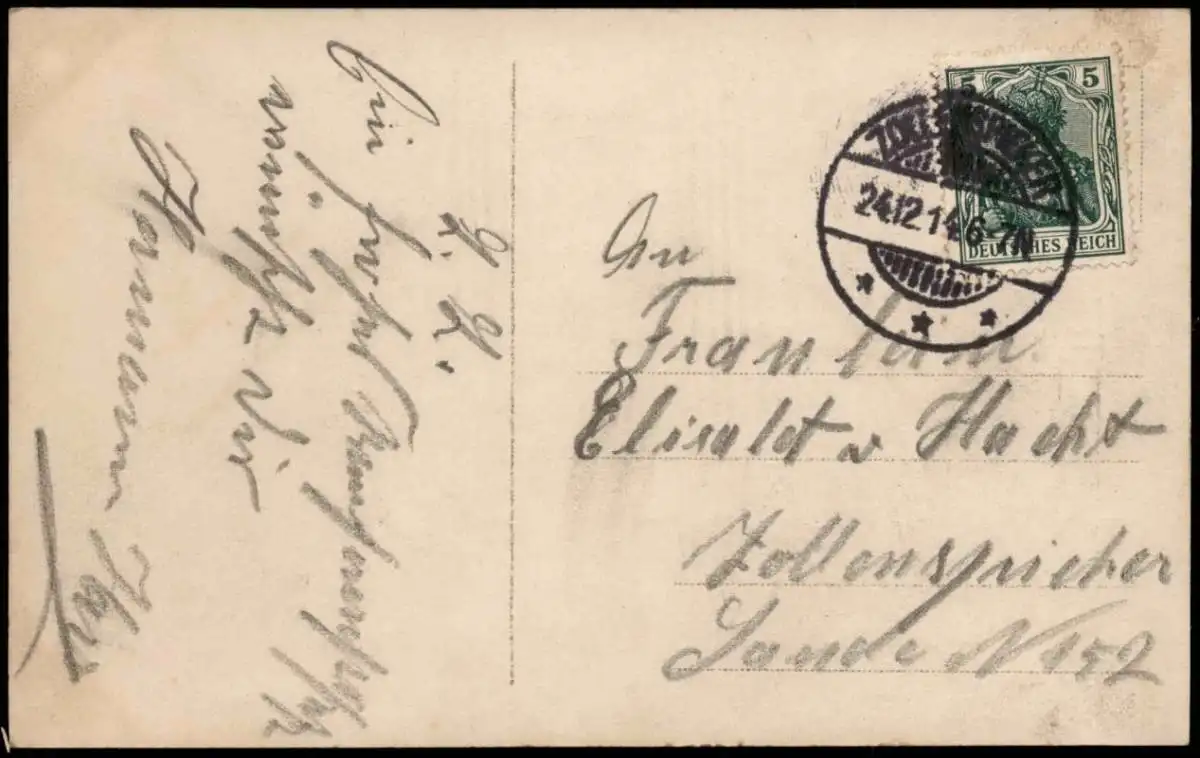 L. L.
Ein frohes Weihnachtsfest
wünscht dir
Hermann
An
Fraulein
Elisabet v Hacht
Zollenspieker
Sande N 152
5 5
DEUTSCHES REICH
ZOLLENSPIEKER
24.12.14.6-7N